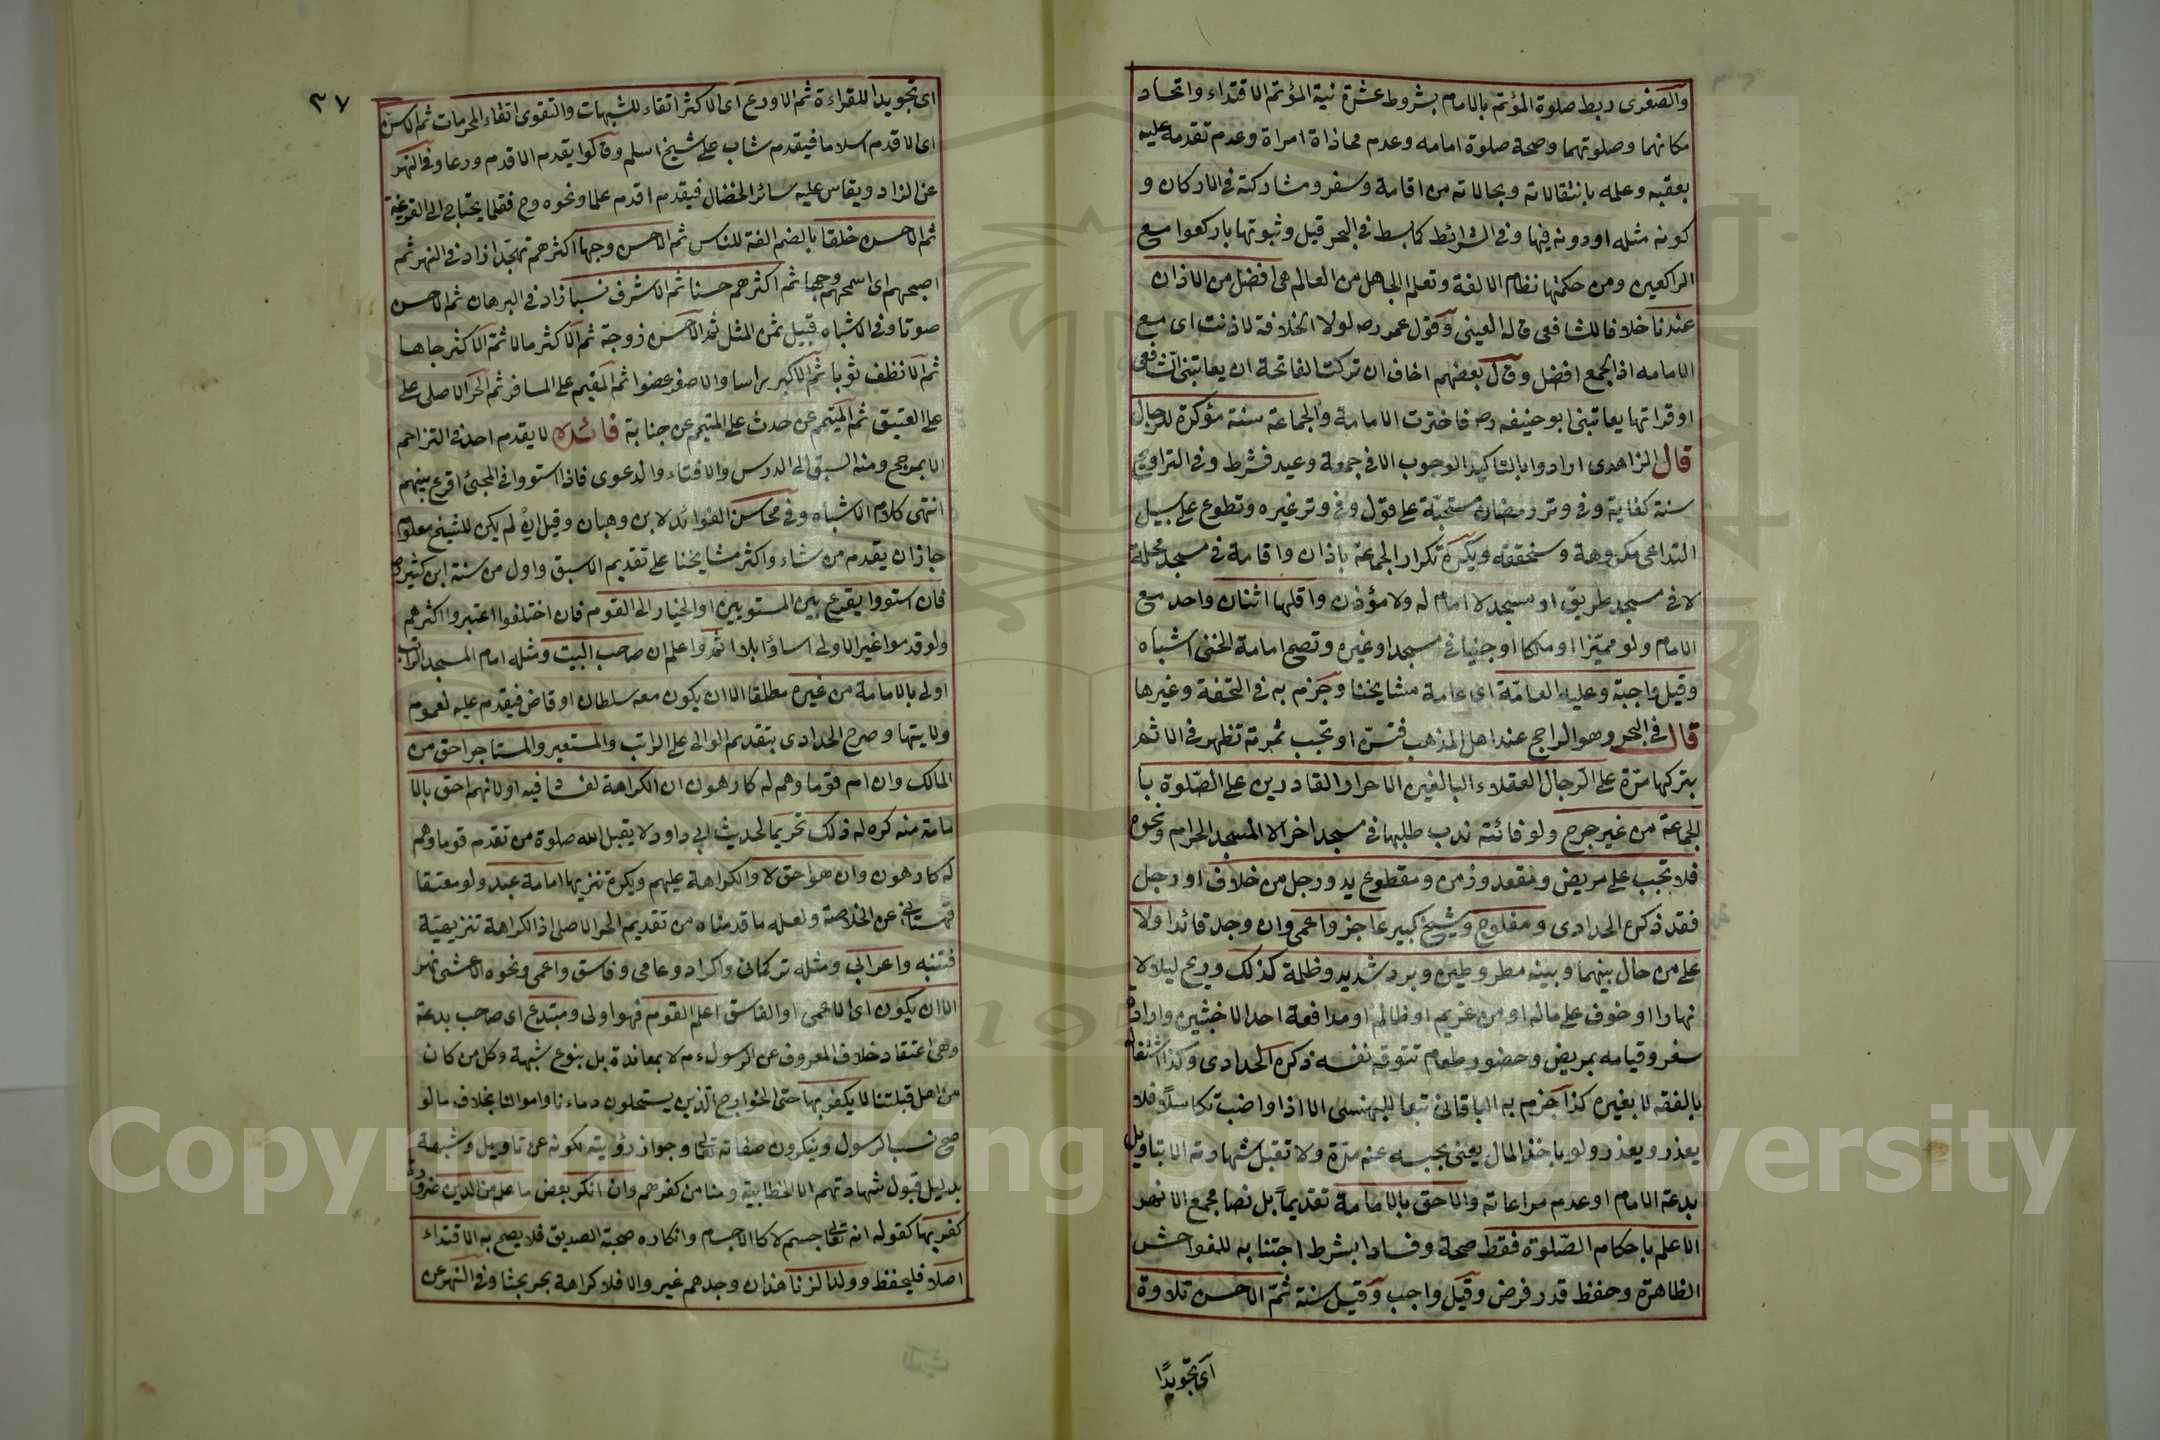 والصغرى ربط صلوة المؤتم بالامام بشروط عشرة نية المؤتم الاقتداء واتحاد
مكانهما وصلوتهما وصحة صلوة امامه وعدم محاذاة امراة وعدم تقدمه عليه
بعقبه وعلمه بانتقالاته وبحالاته من اقامة وسفر ومشاركته في الاركان و
كونه مثله او دونه فيها وفي الشرائط كما بسط في البحر قيل وثبوتها باركعوا مع
الراكعين ومن حكمتها نظام الالفة وتعلم الجاهل من العالم هي افضل من الاذان
عندنا خلافا للشافعي قاله العيني وقول عمر رضه لولا الخلافة لاذنت اى مع
الامامه اذ الجمع افضل وقال بعضهم اخاف ان تركت الفاتحة ان يعاتبني الشافعي
او قراتها يعاتبني ابو حنيفه رضه فاخترت الامامة والجماعة سنة مؤكرة للرجال
قال الزاهدى ارادوا بالتاكيد الوجوب الا في جمعة وعيد فشرط وفي التراويح
سنة كفاية وفي وتر رمضان مستحبة على قول وفي وتر غيره وتطوع على سبيل
التداعى مكروهة وسنحققه ويكره تكرار الجماعة باذان واقامة في مسجد محلة
لا في مسجد طريق او مسجد لا امام له ولا مؤذن واقلها اثنان واحد مع
الامام ولو مميزا او ملكا او جنيا في مسجد او غيره وتصح امامة الجني اشباه
وقيل واجبة وعليه العامة اى عامة مشايخنا وجزم به في التحفة وغيرها
قال في البحر وهو الراجح عند اهل المذهب فتسن او تجب ثمرته تظهر في الاثم
بتركها مرة على الرجال العقلاء البالغين الاحرار القادرين على الصلوة با
لجماعة من غير حرج ولو فاتته ندب طلبها في مسجد اخر الا المسجد الحرام ونحوه
فلا تجب على مريض ومقعد وزمن ومقطوع يد ورجل من خلاف او رجل
فقد ذكره الحدادى ومفلوج وشيخ كبير عاجز واعمى وان وجد قائدا ولا
على من حال بينهما وبينه مطر وطين وبرد شديد وظلمة كذلك وريح ليلا لا
نهارا او خوف على ماله او من غريم او ظالم او مدافعة احد الاخبثين وارادة
سفر وقيامه بمريض وحضور طعام تتوقه نفسه ذكره الحدادى وكذا اشتغاله
بالفقه لا بغيره كذا جزم به الباقاني تبعا للبهنسى الا اذا واضب تكاسلا فلا
يعذر ويعذر ولو باخذ المال يعني بحبسه عنه مدة ولا تقبل شهادته الا بتاويل
بدعة الامام او عدم مراعاته والاحق بالامامة تقديما بل نصا مجمع الانهر
الاعلم باحكام الصلوة فقط صحة وفسادا بشرط اجتنابه للفواحش
الظاهرة وحفظ قدر فرض وقيل واجب وقيل سنة ثم الاحسن تلاوة
اى تجويدا
٣٧
اى تجويدا للقراءة ثم الاورع اى الاكثر اتقاء للشبهات والتقوى اتقاء المحرمات ثم الاسن
اى الاقدم اسلاما فيقدم شاب على شيخ اسلم وقالوا يقدم الاقدم ورعا وفي النهر
عن الزاد ويقاس عليه سائر الخضال فيقدم اقدم علما ونحوه وح فقلما يحتاج الى القرعة
ثم الاحسن خلقا بالضم الفة للناس ثم الاحسن وجها اكثرهم تهجدا زاد في النهر ثم
اصبحهم اى اسمحهم وجها ثم اكثرهم حسنا ثم الاشرف نسبا زاد في البرهان ثم الاحسن
صوتا وفي الاشباه قبيل ثمن المثل ثم الاحسن زوجة ثم الاكثر مالا ثم الاكثر جاها
ثم الانظف ثوبا ثم الاكبر راسا والاصغر عضوا ثم المقيم على المسافر ثم الحر الاصلى على
على العتيق ثم المتيمم عن حدث على المتيمم عن جنابة فائدة لا يقدم احد في التزاحم
الا بمرجح ومنه السبق الى الدرس والافتاء والدعوى فاذا استووا في المجئ اقرع بينهم
انتهى كلام الاشباه وفي محاسن الفوائد لابن وهبان وقيل ان لم يكن للشيخ معلوم
جاز ان يقدم من شاء واكثر مشايخنا على تقديم الاسبق واول من سنة ابن كثير
فان استووا يقرع بين المستويين او الخيار الى القوم فان اختلفوا اعتبروا اكثرهم
ولو قدموا غير الاولى اساؤا بلا اثم واعلم ان صاحب البيت ومثله امام المسجد الراتب
اولى بالامامة من غيره مطلقا الا ان يكون معه سلطان او قاض فيقدم عليه لعموم
ولايتها وصرح الحدادى بتقديم الوالى على الراتب والمستعير والمستاجر احق من
المالك وان ام قوما وهم له كارهون ان الكراهة لفساد فيه او لانهم احق بالا
مامة منه كره له ذلك تحريما لحديث ابى داود لا يقبل الله صلوة من تقدم قوما وهم
له كارهون وان هو احق لا والكراهة عليهم ويكره تنزيها امامة عبد ولو معتقا
قهستاني عن الخلاصة ولعله ما قدمناه من تقديم الحر الاصلى اذ الكراهة تنزيهية
فتنبه واعرابي ومثله تركمانى واكراد وعامى وفاسق واعمى ونحوه الاعشى نهر
الا ان يكون اى الاعمى او الفاسق اعلم القوم فهو اولى ومبتدع اى صاحب بدعة
وهى اعتقاد خلاف المعروف عن الرسول عم لا بمعاندة بل بنوع شبهة وكل من كان
من اهل قبلتنا لا يكفر بها حتى الخوارج الذين يستحلون دماءنا واموالنا بخلاف ما لو
صح نسب الرسول وينكرون صفاته تعالى وجواز رؤيته لكونه عن تاويل وشبهة
بدليل قبول شهادتهم الا الخطابية ومنا من كفرهم وان انكر بعض ما علم من الدين ضرورة
كفر بها كقوله انه تعالى جسم لا كالاجسام وانكاره صحبة الصديق فلا يصح به الاقتداء
اصلا فليحفظ وولد الزنا هذا ان وجد هم غير والا فلا كراهة بحر بحثا وفي النهر عن
Copyright © King Saud University